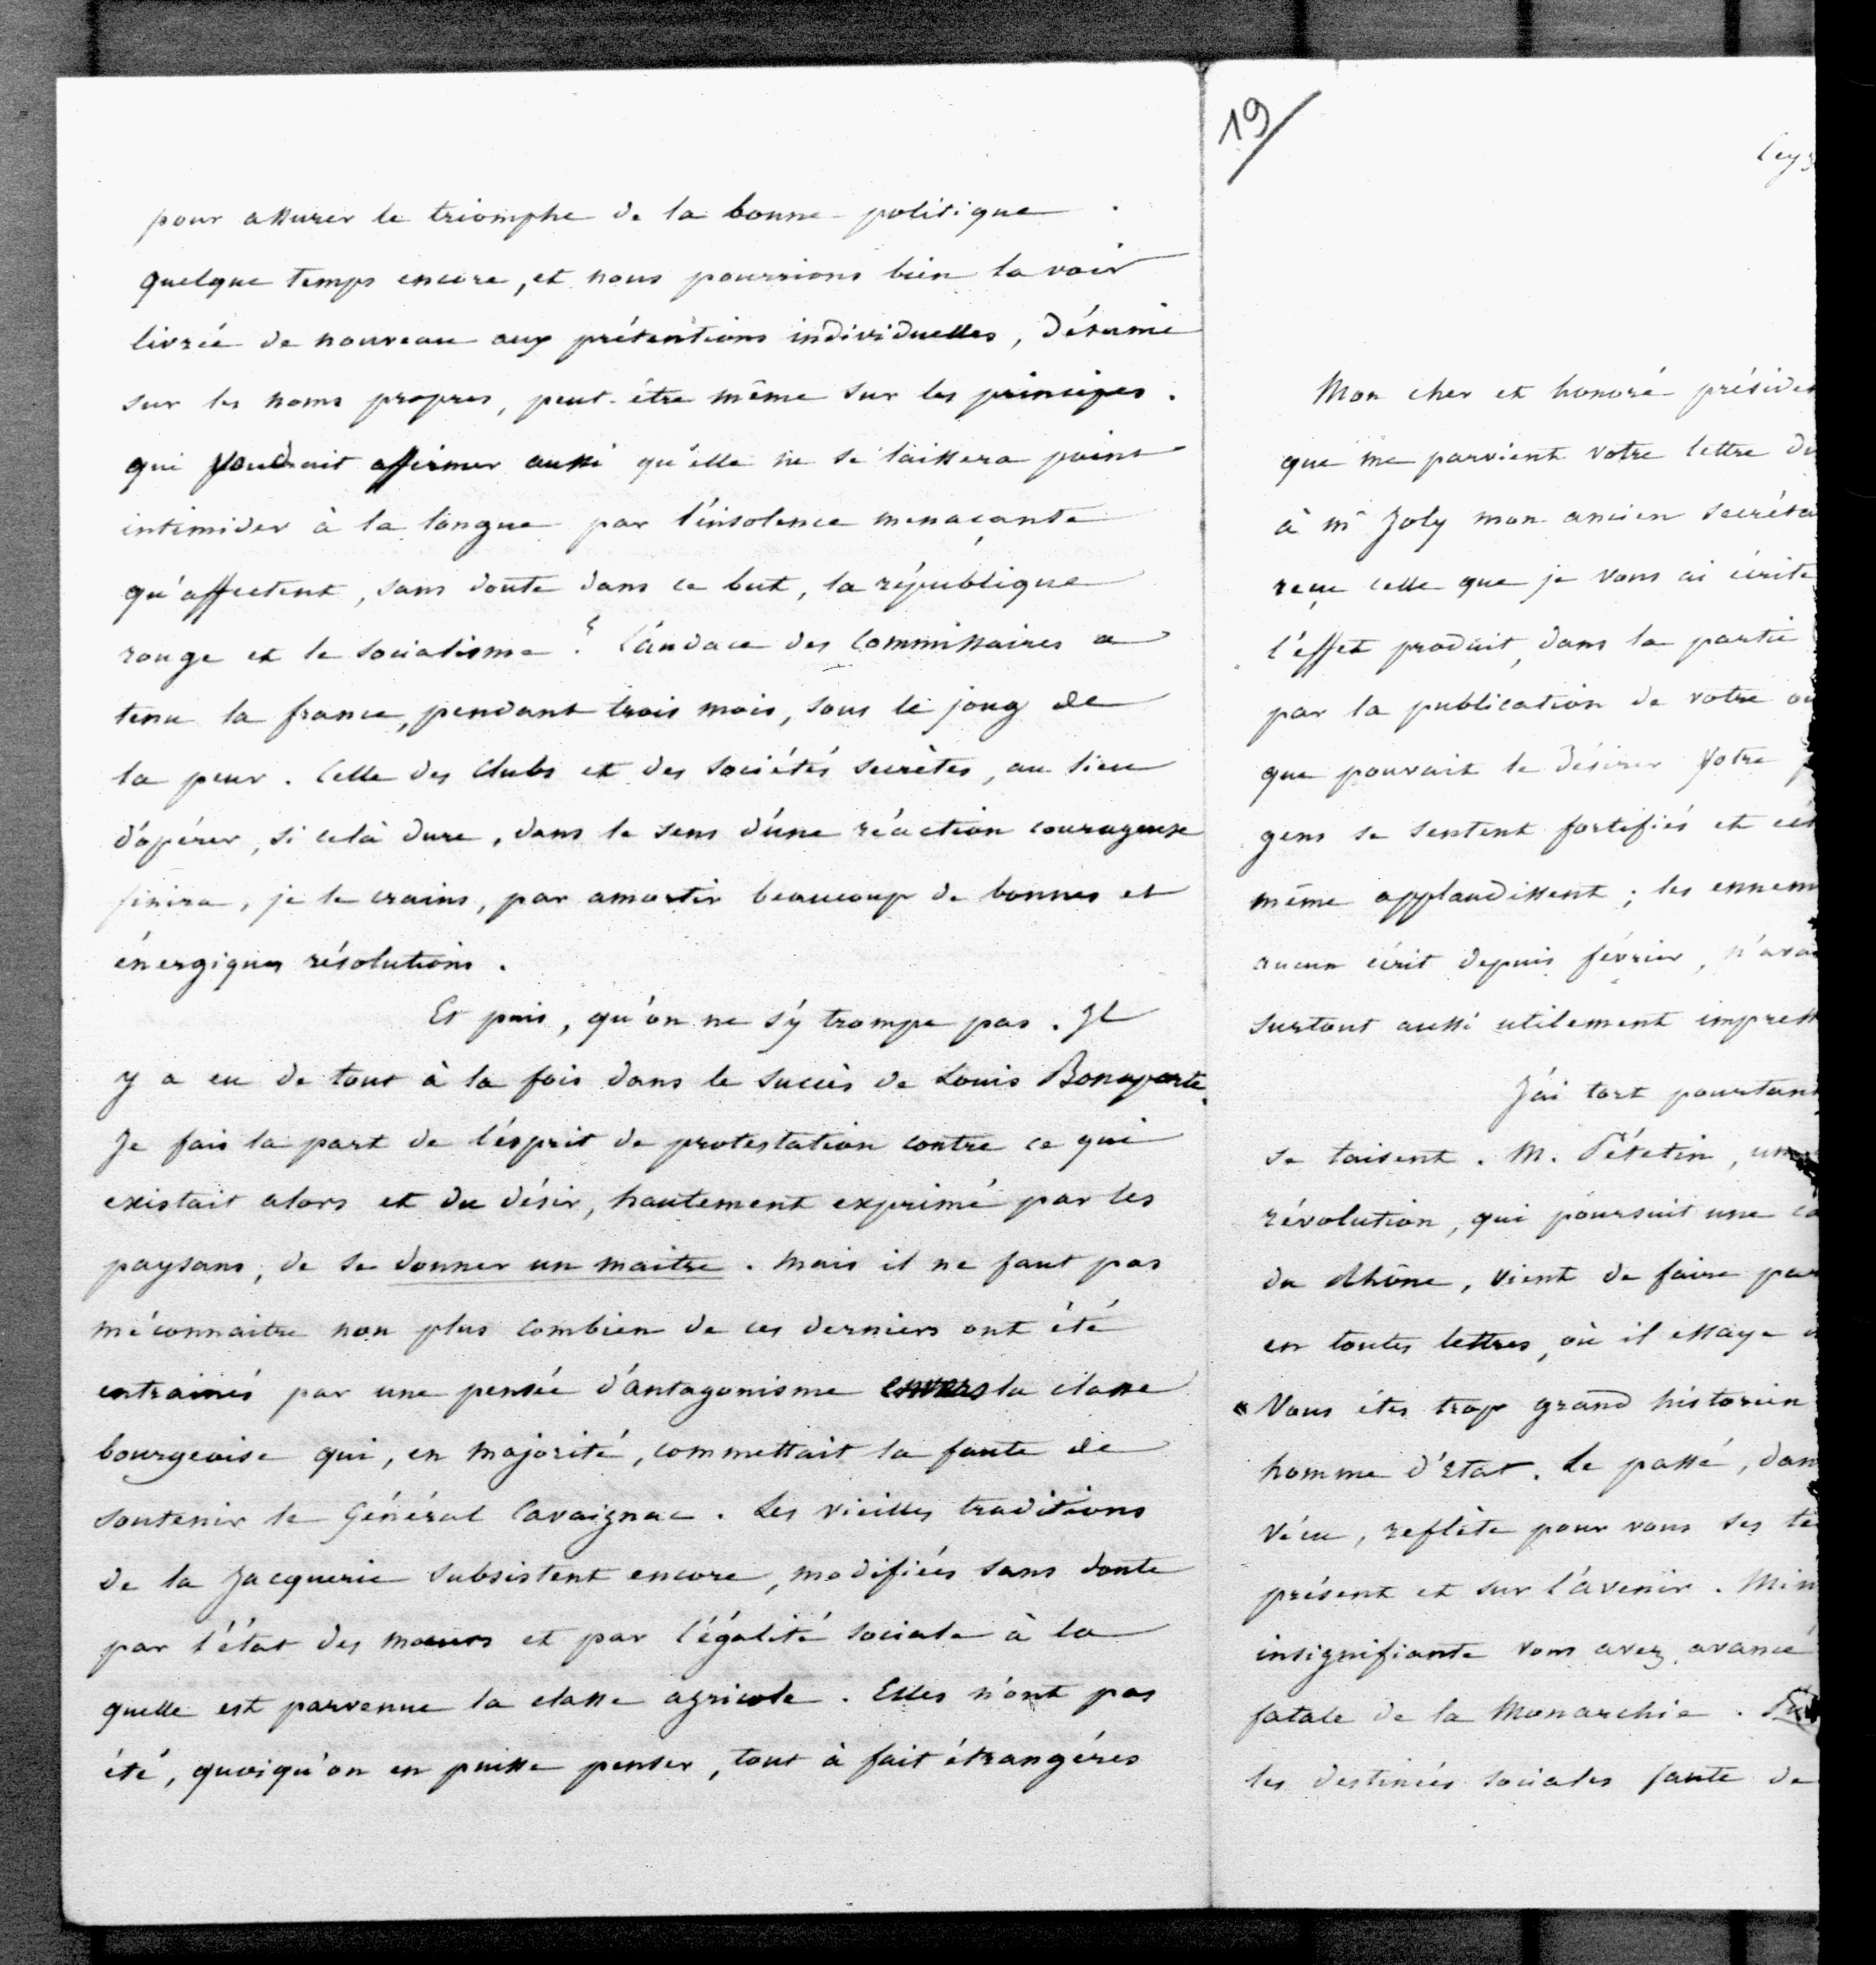 pour assurer le triomphe de la bonne politique.
quelque temps encore, et nous pourrions bien la voir
livrée de nouveau aux prétentions individuelles, désunie
sur les noms propres, peut-être même sur les principes.
qui voudrait affirmer aussi qu'elle ne se laissera point
intimider à la longue par l'insolence menaçante
qu'affectent, sans doute dans ce but, la république
rouge et le socialisme ? l'audace des commissaires a
tenu la france, pendant trois mois, sous le joug de
la peur. Celle des clubs et des sociétés secrètes, au lieu
d'opérer, si celà dure, dans le sens d'une réaction courageuse
finira, je le crains, par amortir beaucoup de bonnes et
énergiques résolutions.
Et puis, qu'on ne s'y trompe pas. Il
y a eu de tout à la fois dans le succès de Louis Bonaparte.
Je fais la part de l'esprit de protestation contre ce qui
existait alors et du désir, hautement exprimé par les
paysans, de se donner un maitre. Mais il ne faut pas
méconnaitre non plus combien de ces derniers ont été
entrainés par une pensée d'antagonisme envers la classe
bourgeoise qui, en majorité, commettait la faute de
soutenir le Général Cavaignac. Les vieilles traditions
de la Jacquerie subsistent encore, modifiées sans doute
par l'état des mœurs et par l'égalité sociale à la
quelle est parvenue la classe agricole. Elles n'ont pas
été, quoiqu'on en puisse penser, tout à fait étrangéres
19
Mon cher et honoré présiden
que me parvient votre lettre du
à Mr Joly mon ancien secréta
reçu celle que je vous ai écrite
l'effet produit, dans la partie
par la publication de votre ou
que pouvait le désirer votre
gens se sentent fortifiés et
même applaudissent ; les ennem
aucun écrit depuis février, n'avai
surtout aussi utilement impress
J'ai tort pourtant
se taisent. M. Pétetin,
révolution, qui poursuit une
du Rhône, vient de faire par
en toutes lettres, où il essaye
" Vous êtes trop grand historien
homme d'Etat. Le passé, dan
vécu, reflète pour vous ses te
présent et sur l'avenir. Min
insignifiante vous avez avancé
fatale de la Monarchie.
les destinées sociales faute de